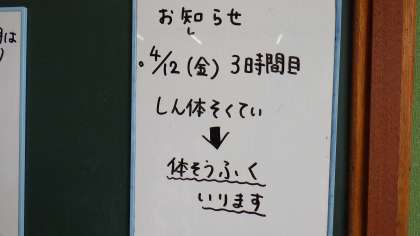 お知らせ
。4/12(金) 3時間目
しん体そくてい
↓
体そうふく
いります